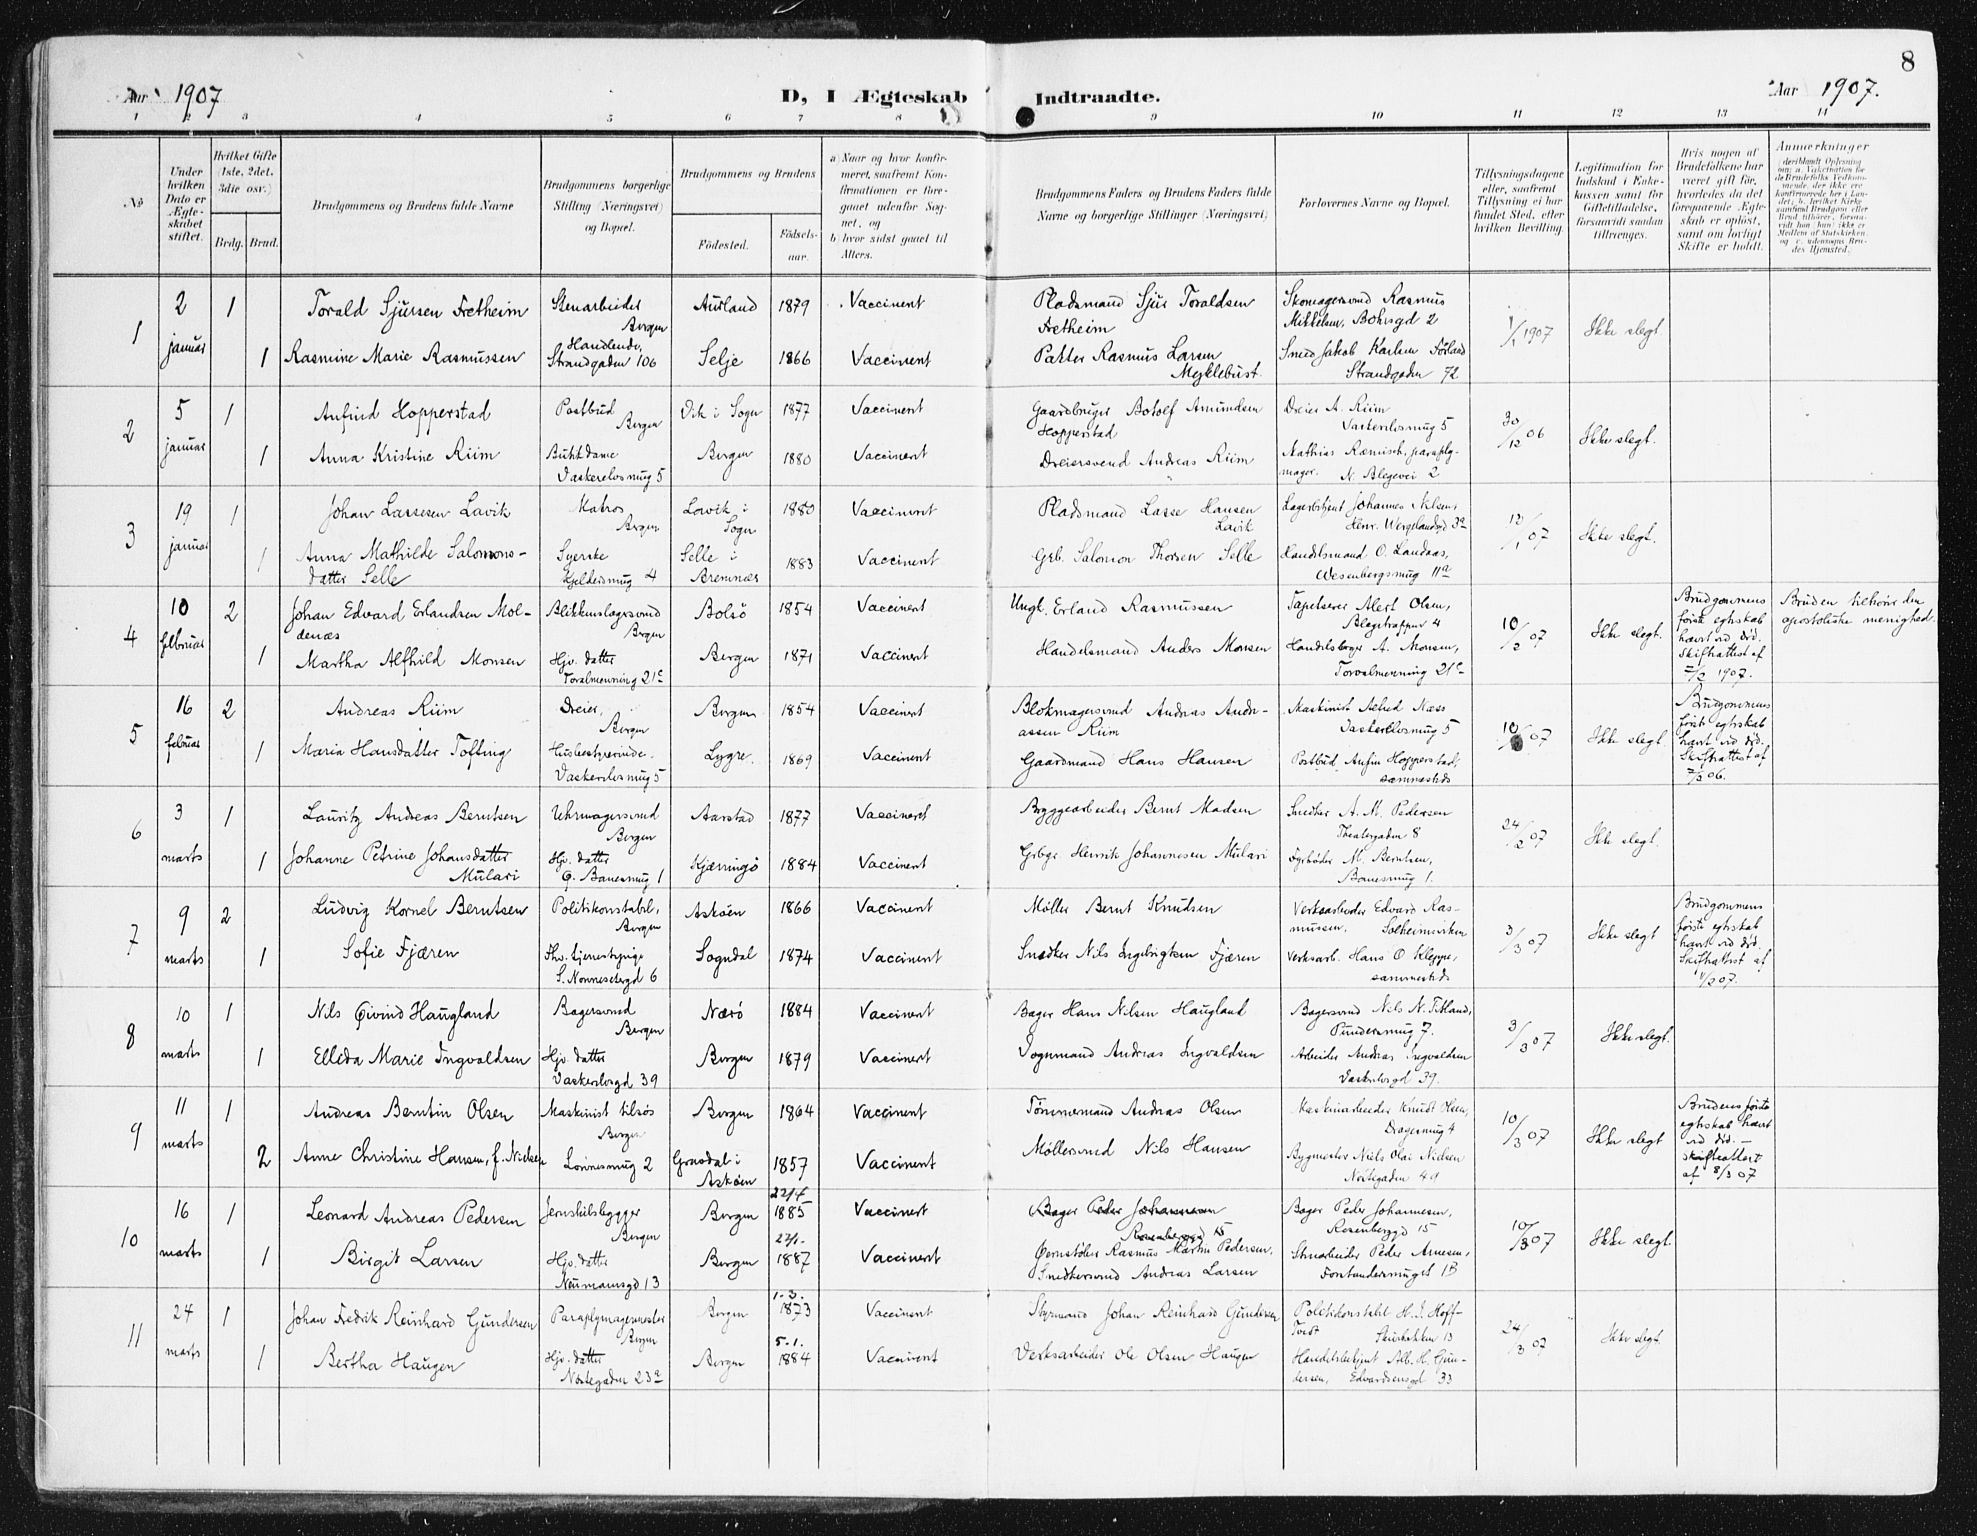 8
Aar 1907
D, I Ægteskab Indtraadte.
Aar 1907.
1 2 3 4 5 6 7 8 9 10 11 12 13 14
No
Under hvilken Dato er Ægteskabet stiftet.
Hvilket Gifte (1ste, 2det, 3die osv.)
Brdg. Brud.
Brudgommens og Brudens fulde Navne
Brudgommens borgerlige Stilling (Næringsvei) og Bopæl.
Brudgommens og Brudens
Fødested.
Fødselsaar.
a) Naar og hvor konfirmeret, saafremt Konfirmationen er foregaaet udenfor Sognet, og
b) hvor sidst gaaet til Alters.
Brudgommens Faders og Brudens Faders fulde Navne og borgerlige Stillinger (Næringsvei)
Forlovernes Navne og Bopæl.
Tillysningsdagene eller, saafremt Tillysning ei har fundet Sted, efter hvilken Bevilling.
Legitimation for Indskud i Enkekassen samt for Giftetilladelse, forsaavidt saadan tiltrænges.
Hvis nogen af Brudefolkene har været gift før, hvorledes da det foregaaende Ægteskab er opløst, samt om lovligt Skifte er holdt.
Anmerkninger
1 2 januar 1 Torald Sjursen Fretheim Stenarbeider Bergen Aurland 1879 Vaccinert Pladsmand Sjur Toraldsen Fretheim Skomagersvend Rasmus Mikkelsen, Bohrsgd 2 1/1 1907 Ikke slegt.
1 Rasmine Marie Rasmussen Handlende, Strandgaden 106 Selje 1866 Vaccinert Rasmus Larsen Myklebust Smed Jakob Karlsen Strandgaden 72
2 5 januar 1 Anfind Hopperstad Postbud Bergen Vik i Sogn 1877 Vaccinert Gaardbruger Botolf Amundsen Hopperstad Dreier A. Riim Vaskerelvsmug 5 30/12 06 Ikke slegt.
1 Anna Kristine Riim Vaskerelvsmug 5 Bergen 1880 Vaccinert Dreiersvend Andreas Riim Mathias Ræmisch, paraplymager. N. Blegevei 2
3 19 januar 1 Johan Lassesen Lavik Matros Bergen Lavik i Sogn 1880 Vaccinert Pladsmand Lasse Hansen Lavik Johannes Nilsen, Henr. Wergelandsgd 3a 13/1 07 Ikke slegt.
1 Anna Mathilde Salomonsdatter Selle Syerske Kjeldersmug 4 Selle i Bremnes 1883 Vaccinert Grb. Salomon Thorsen Selle Handelsmand O. Landaas, Wesenbergsmug 11a
4 10 februar 2 Johan Edvard Erlandsen Moldenæs Blikkenslagersvend Bergen Bolsø 1854 Vaccinert Ungk. Erland Rasmussen Tapetserer Alert Olsen, Blegetrappen 4 10/2 07 Ikke slegt. Brudgommens første egteskab hævt ved død. Skifteattest af 2/2 1907. Bruden tilhører den apostoliske menighed.
1 Martha Alfhild Monsen Hjv. datter Torvalmenning 21c Bergen 1871 Vaccinert Handelsmand Anders Monsen Handelsborger A. Monsen, Torvalmenning 21c
5 16 februar 2 Andreas Riim Dreier, Bergen Bergen 1854 Vaccinert Blokmagersvend Andreas Andreassen Riim Maskinist Alfred Næss Vaskerelvsmug 5 10/ 07 Ikke slegt. Brudgommens første egteskab hævt ved død. Skifteattest af 06.
1 Maria Hansdatter Tofting Husbestyrerinde. Vaskerelvsmug 5 Lygre. 1869 Vaccinert Gaardmand Hans Hansen Postbud Anfin Hopperstad, sammesteds
6 3 marts 1 Lauritz Andreas Berntsen Uhrmagersvend Bergen Aarstad 1877 Vaccineret Bryggearbeider Bernt Madsen Snedker A. M. Pedersen Theatergaden 8 24/2 07 Ikke slegt.
1 Johanne Petrine Johansdatter Mulari Hjv. datter Banersmug 1 Kjerringø 1884 Vaccinert Henrik Johannesen Mulari Fyrbøder M. Berntsen, Banersmug 1.
7 9 marts 2 Ludvig Kornel Berntsen Politikonstabel, Bergen Askøen 1866 Vaccinert Møller Bernt Knudsen Verksarbeider Edvard Rasmussen, Solheimsviken 3/3 07 Ikke slegt Brudgommens første egteskab hævt ved død. Skifteattest af
1 Sofie Fjæren Fhv. tjenestepige S. Nonnesetergd 6 Sogndal 1874 Vaccinert Snedker Nils Ingebrigtsen Fjæren Verksarb. Hans O Kleppe, sammesteds
8 10 marts 1 Nils Øivind Haugland Bagersvend Bergen Nærø 1884 Vaccinert Bager Hans Nilsen Haugland Bagersvend Nils N. Titland, Pundersmug 7. 3/3 07 Ikke slegt.
1 Elleda Marie Ingvaldsen Hjv. datter Vaskerelvsgd 39 Bergen 1879 Vaccinert Vognmand Andreas Ingvaldsen Arbeider Andreas Ingvaldsen Vaskerelvsgd 39.
9 11 marts 1 Andreas Berntin Olsen Maskinist tilsøs Bergen Bergen 1864 Vaccinert Tømmermand Andreas Olsen Maskinarbeider Knudt Olsen, Dragersmug 4 10/3 07 Ikke slegt Brudens første egteskab hævt ved død. – Skifteattest af 8/3 07
2 Anne Christine Hansen, f. Nielsen Lønnesmug 2 i Askøen 1857 Vaccinert Møllersvend Nils Hansen Bygmester Niels Olai Nielsen Nøstegaden 49
10 16 marts 1 Leonard Andreas Pedersen Jernskibsbygger Bergen Bergen 22/4 1885 Vaccinert Bager Peder Johannesen Rosenberggd 15 Rasmus Martin Pedersen, Bager Peder Johannesen, Rosenberggd 15 10/3 07 Ikke slegt.
1 Birgit Larsen Hjv. datter Neumannsgd 13 Bergen 1887 Vaccinert Snedkersvend Andreas Larsen Stenarbeider Peder Arnesen, Forstandersmuget 1B
11 24 marts 1 Johan Fredrik Reinhard Gundersen Paraplymagermester Bergen Bergen 1.3. 1873 Vaccinert Styrmand Johan Reinhard Gundersen Politikonstabel H. J. Hoff-Tvedt Skivebakken 13 24/3 07 Ikke slegt.
1 Bertha Haugen Hjv. datter Nøstegaden 23a Bergen 5.1. 1884 Vaccinert Verksarbeider Ole Olsen Haugen Handelsbetjent Alb. H. Gundersen, Edvardsensgd 33